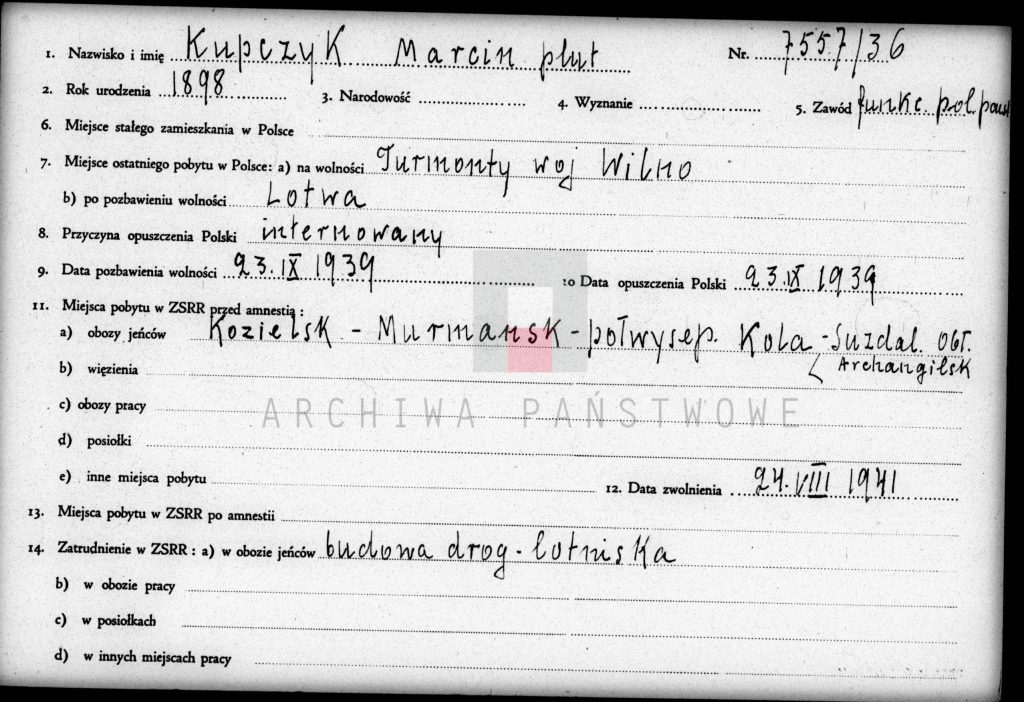 1. Nazwisko i imię Kupczyk Marcin plut Nr. 7557/36
2. Rok urodzenia 1898 3. Narodowość 4. Wyznanie 5. Zawód funkc. pol. pańs
6. Miejsce stałego zamieszkania w Polsce
7. Miejsce ostatniego pobytu w Polsce: a) na wolności Turmonty woj Wilno
b) po pozbawieniu wolności Łotwa
8. Przyczyna opuszczenia Polski internowany
9. Data pozbawienia wolności 23.IX 1939 10 Data opuszczenia Polski 23.IX 1939
11. Miejsca pobytu w ZSRR przed amnestią :
a) obozy jeńców Kozielsk - Murmansk - połwysep. Kola - Suzdal. obł.
Archangilsk
b) więzienia
c) obozy pracy
ARCHIWA PAŃSTWOWE
d) posiołki
e) inne miejsca pobytu 12. Data zwolnienia 24.VIII 1941
13. Miejsca pobytu w ZSRR po amnestii
14. Zatrudnienie w ZSRR : a) w obozie jeńców budowa drog - lotniska
b) w obozie pracy
c) w posiołkach
d) w innych miejscach pracy